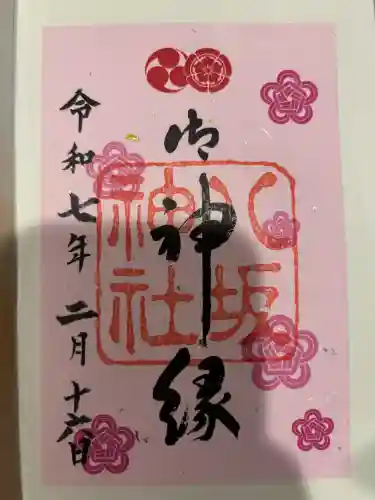 御神縁
八坂
神社
令和七年二月十六日